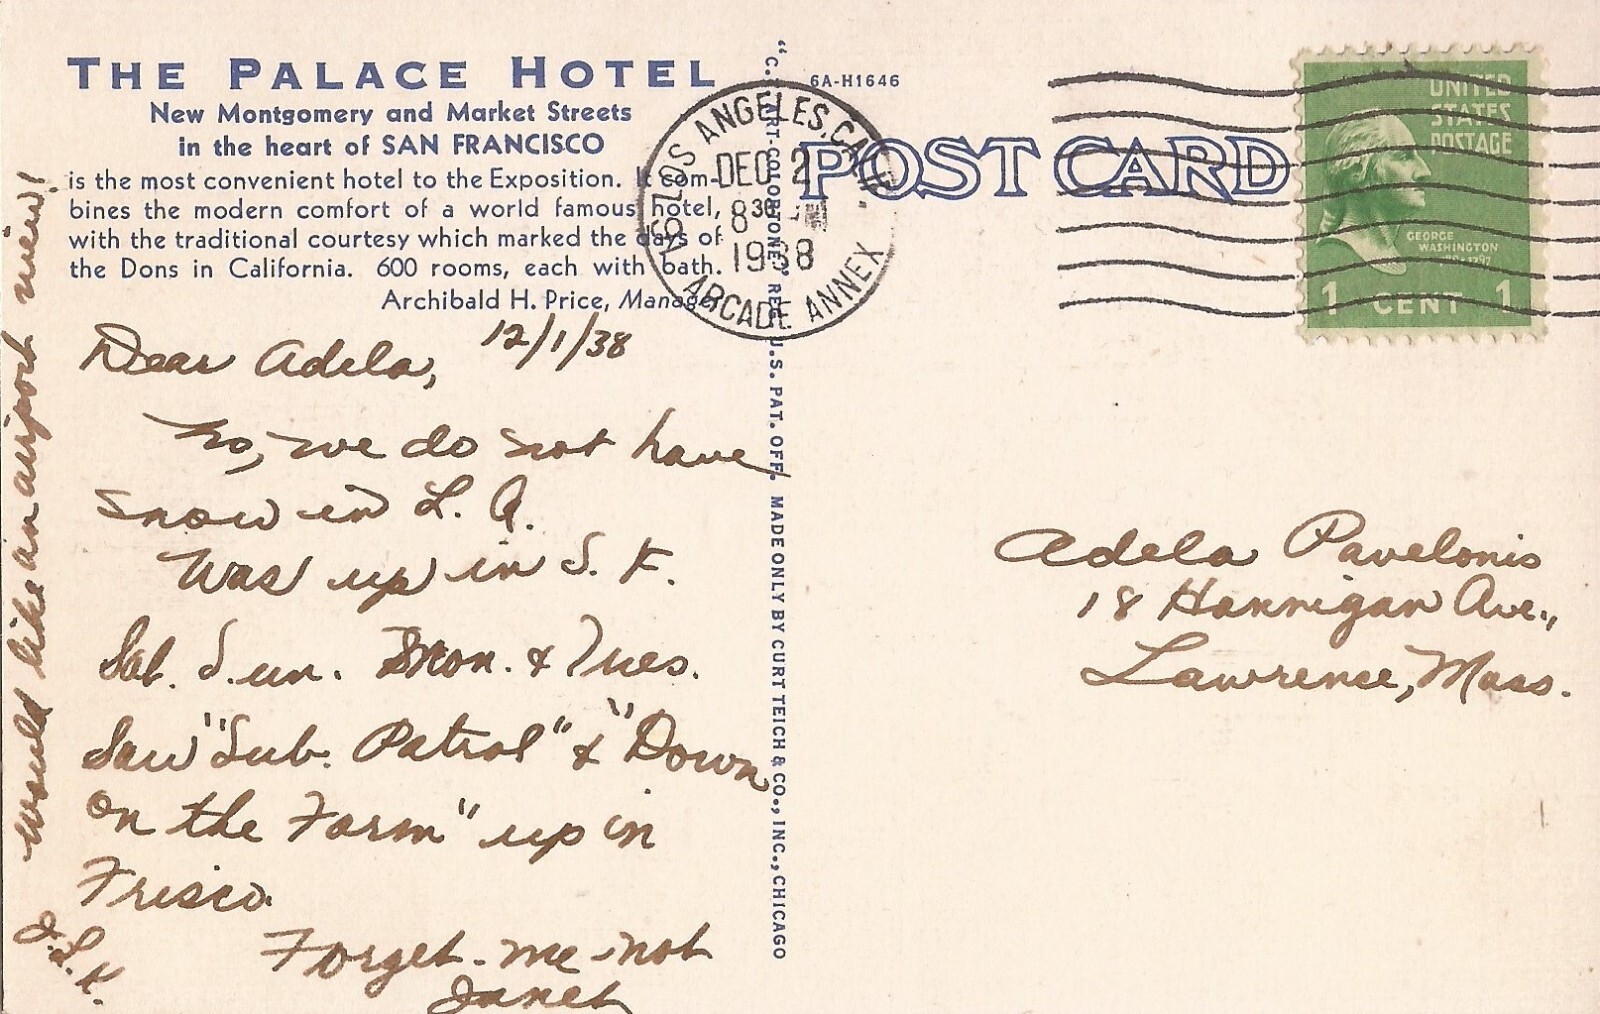 THE PALACE HOTEL
New Montgomery and Market Streets
in the heart of SAN FRANCISCO
is the most convenient hotel to the Exposition. It com-
bines the modern comfort of a world famous hotel,
with the traditional courtesy which marked the days of
the Dons in California. 600 rooms, each with bath.
Archibald H. Price, Manager
12/1/38
Dear Adela,
No, we do not have
snow in L. A.
Was up in S. F.
Sat. Sun. Mon. & Tues.
Saw "Sub. Patrol" & "Down
on the Farm" up in
Frisco.
Forget-me-not
Janet
J. L. K.
would like an airport view!
"C. T. ART-COLORTONE" REG. U.S. PAT. OFF. MADE ONLY BY CURT TEICH & CO., INC., CHICAGO
6A-H1646
POST CARD
LOS ANGELES, CALIF.
DEC 2
8 30
1938
ARCADE ANNEX
UNITED
STATES
POSTAGE
GEORGE
WASHINGTON
1 CENT 1
Adela Pavelonis
18 Hannigan Ave.,
Lawrence, Mass.